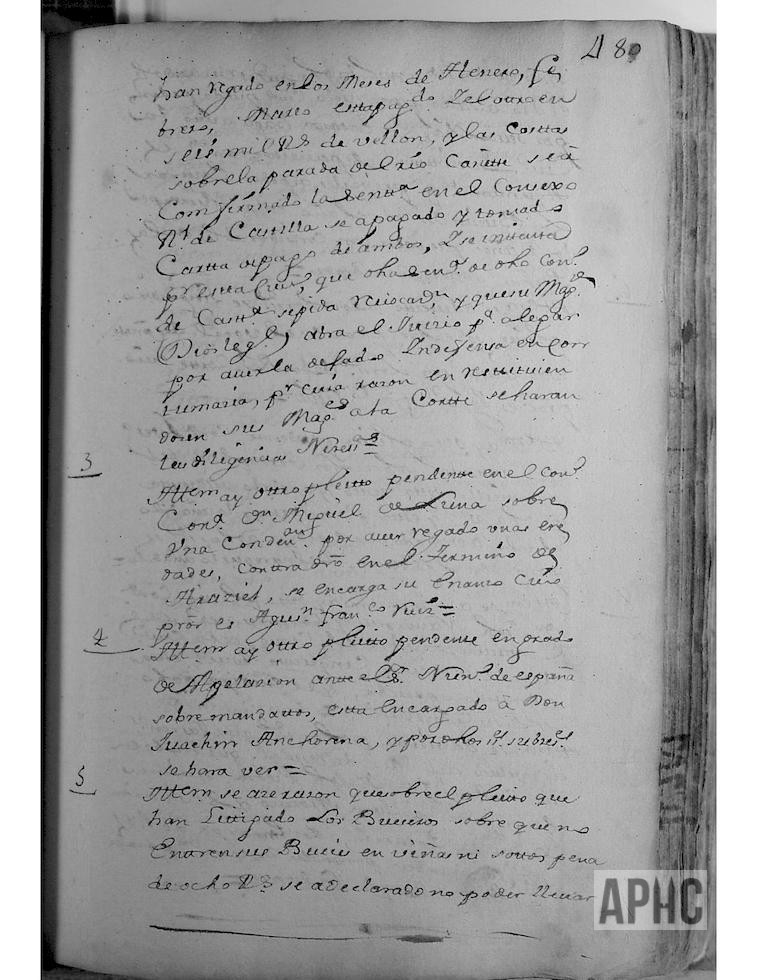 480
han Regado en los Meses de Henero, fe
brero, Marzo esta pagdo Ze lo otro en
seis mil Rs de vellon, y las Costtas
sobre la parada del rio Cañette se a
Comfirmado la Senta en el Consexo
Rl de Castilla se a pagado y tomado
Cartta de pago de ambos,
que dha de dho Conº
de Castª se pida y que su Magd
(Dios le ge) abra el Juizio pª alegar
por averla dejado Indefensa en Con
tumazia, pr cuia razon en
sus Mags a la Cortte se haran
las diligencias Neresas =
3
Ittem ay ottro pleitto pendente en el Conº
Conª Dn Miguel de Luna sobre
Una Conden.on por aver regado unas ere
dades, Contra dro en el Termino de
Araziel, se encarga su
pror es Agusn franco Ruiz =
4
Ittem ay ottro pleitto pendente en grado
de Apelazion ante el Sr Nunº de españa
sobre mandattos, estta encargado â Don
Juachin Anchorena, y por dhos
se hara ver =
5
Ittem se aze razon que sobre el pleitto que
han Littigado Los Bueizos sobre que no
Entren sus Bueies en viñas ni sottos pena
de ocho Rs se a declarado no poder llevar
APHC